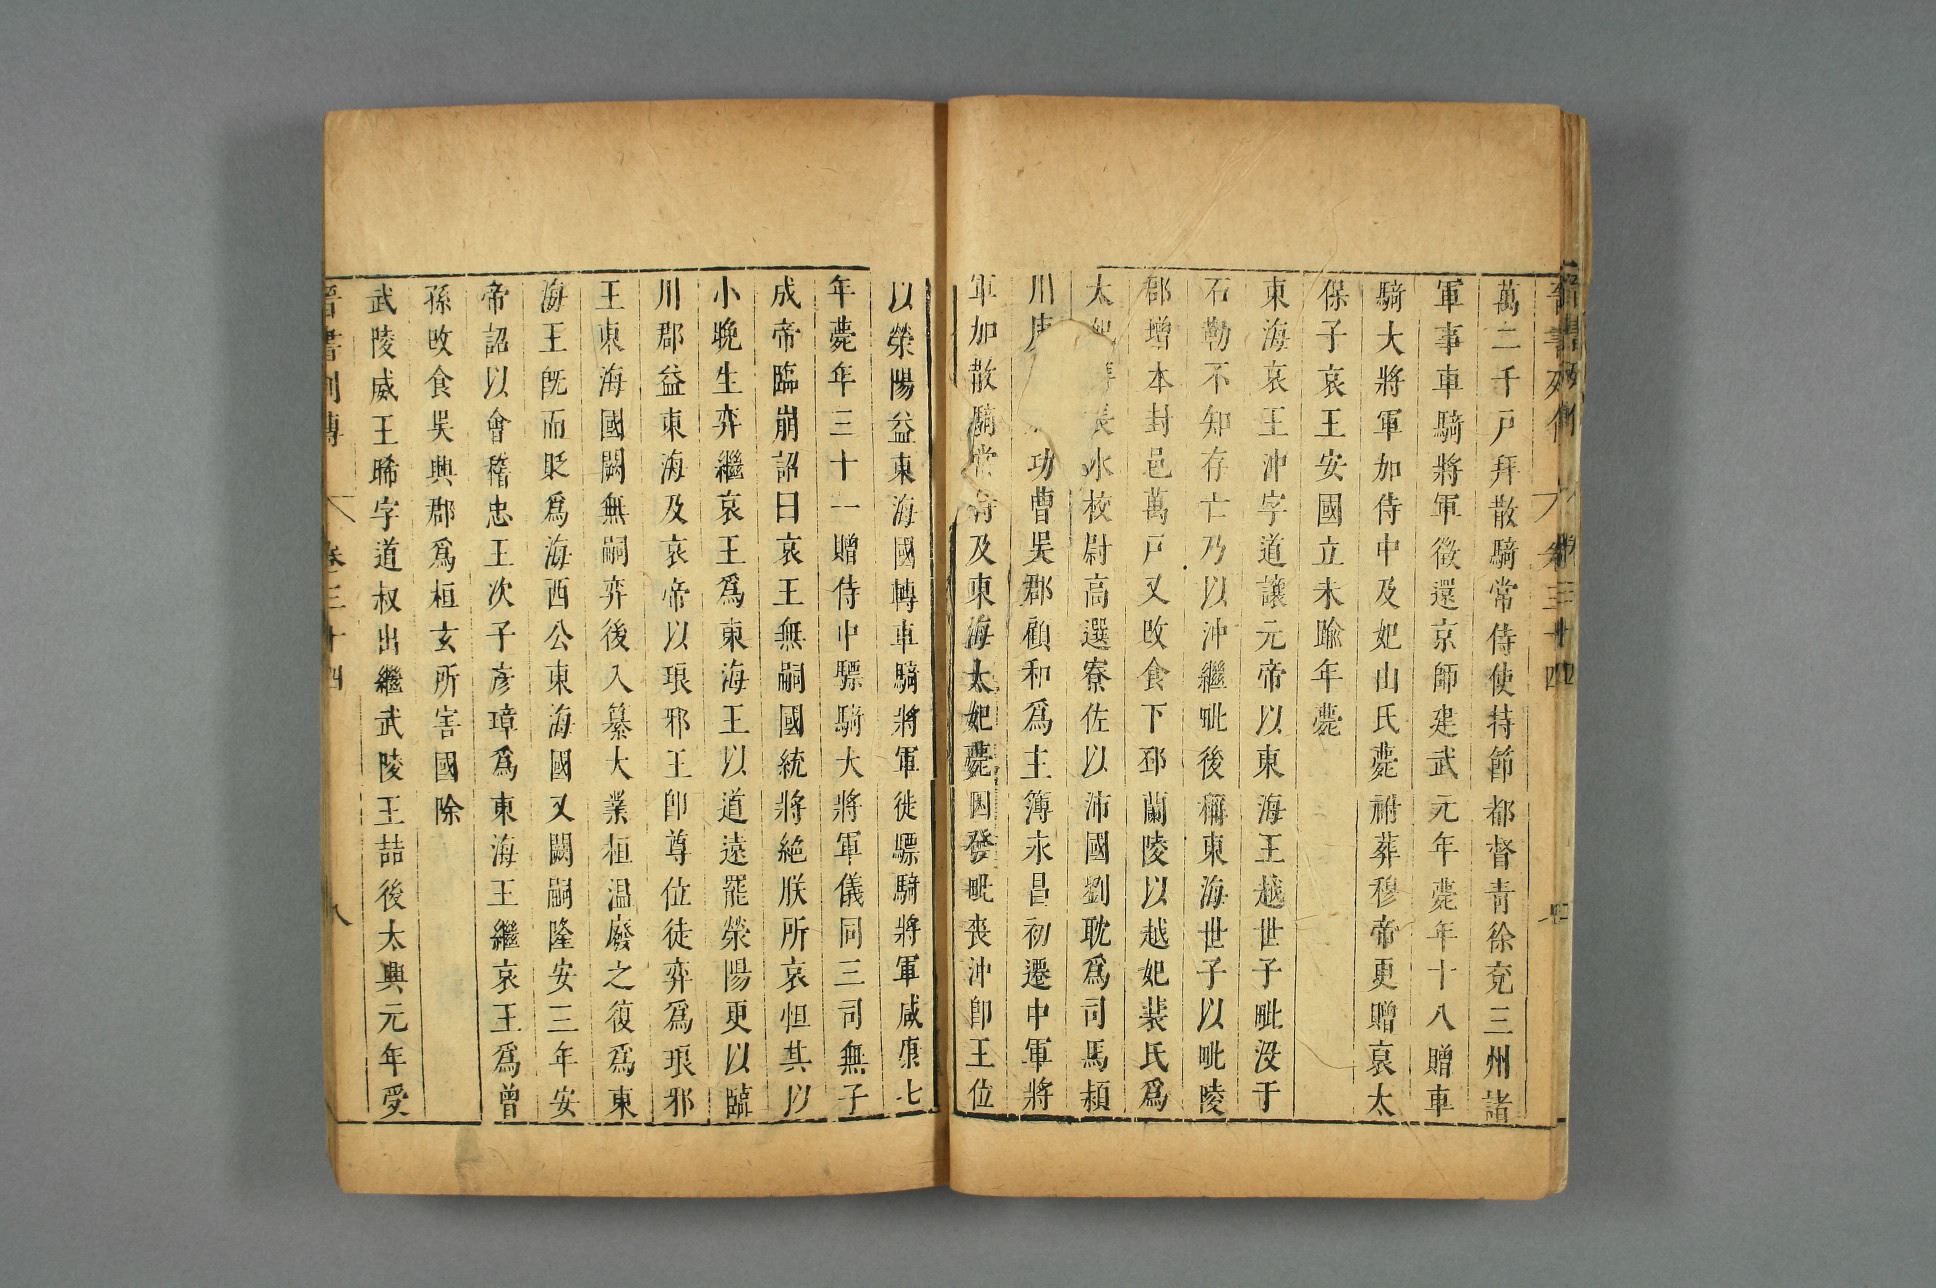 晉書列傳 卷三十四
萬二千戸拜散騎常侍使持節都督青徐兗三州諸
軍事車騎將軍徵還京師建武元年薨年十八贈車
騎大將軍加侍中及妃山氏薨祔葬穆帝更贈哀太
保子哀王安國立未踰年薨
東海哀王沖字道讓元帝以東海王越世子毗沒于
石勒不知存亡乃以沖繼毗後稱東海世子以毗陵
郡增本封邑萬戸又改食下邳蘭陵以越妃裴氏爲
太妃長水校尉高選寮佐以沛國劉耽爲司馬潁
川庾功曹吳郡顧和爲主簿永昌初遷中軍將
軍加散騎常侍及東海太妃薨因發毗喪沖卽王位
以滎陽益東海國轉車騎將軍徙驃騎將軍咸康七
年薨年三十一贈侍中驃騎大將軍儀同三司無子
成帝臨崩詔曰哀王無嗣國統將絕朕所哀怛其以
小晚生弈繼哀王爲東海王以道遠罷滎陽更以臨
川郡益東海及哀帝以琅邪王卽尊位徙弈爲琅邪
王東海國闕無嗣弈後入纂大業桓温廢之復爲東
海王旣而貶爲海西公東海國又闕嗣隆安三年安
帝詔以會稽忠王次子彥璋爲東海王繼哀王爲曾
孫改食吳興郡爲桓玄所害國除
武陵威王晞字道叔出繼武陵王喆後太興元年受
晉書列傳 卷三十四 八